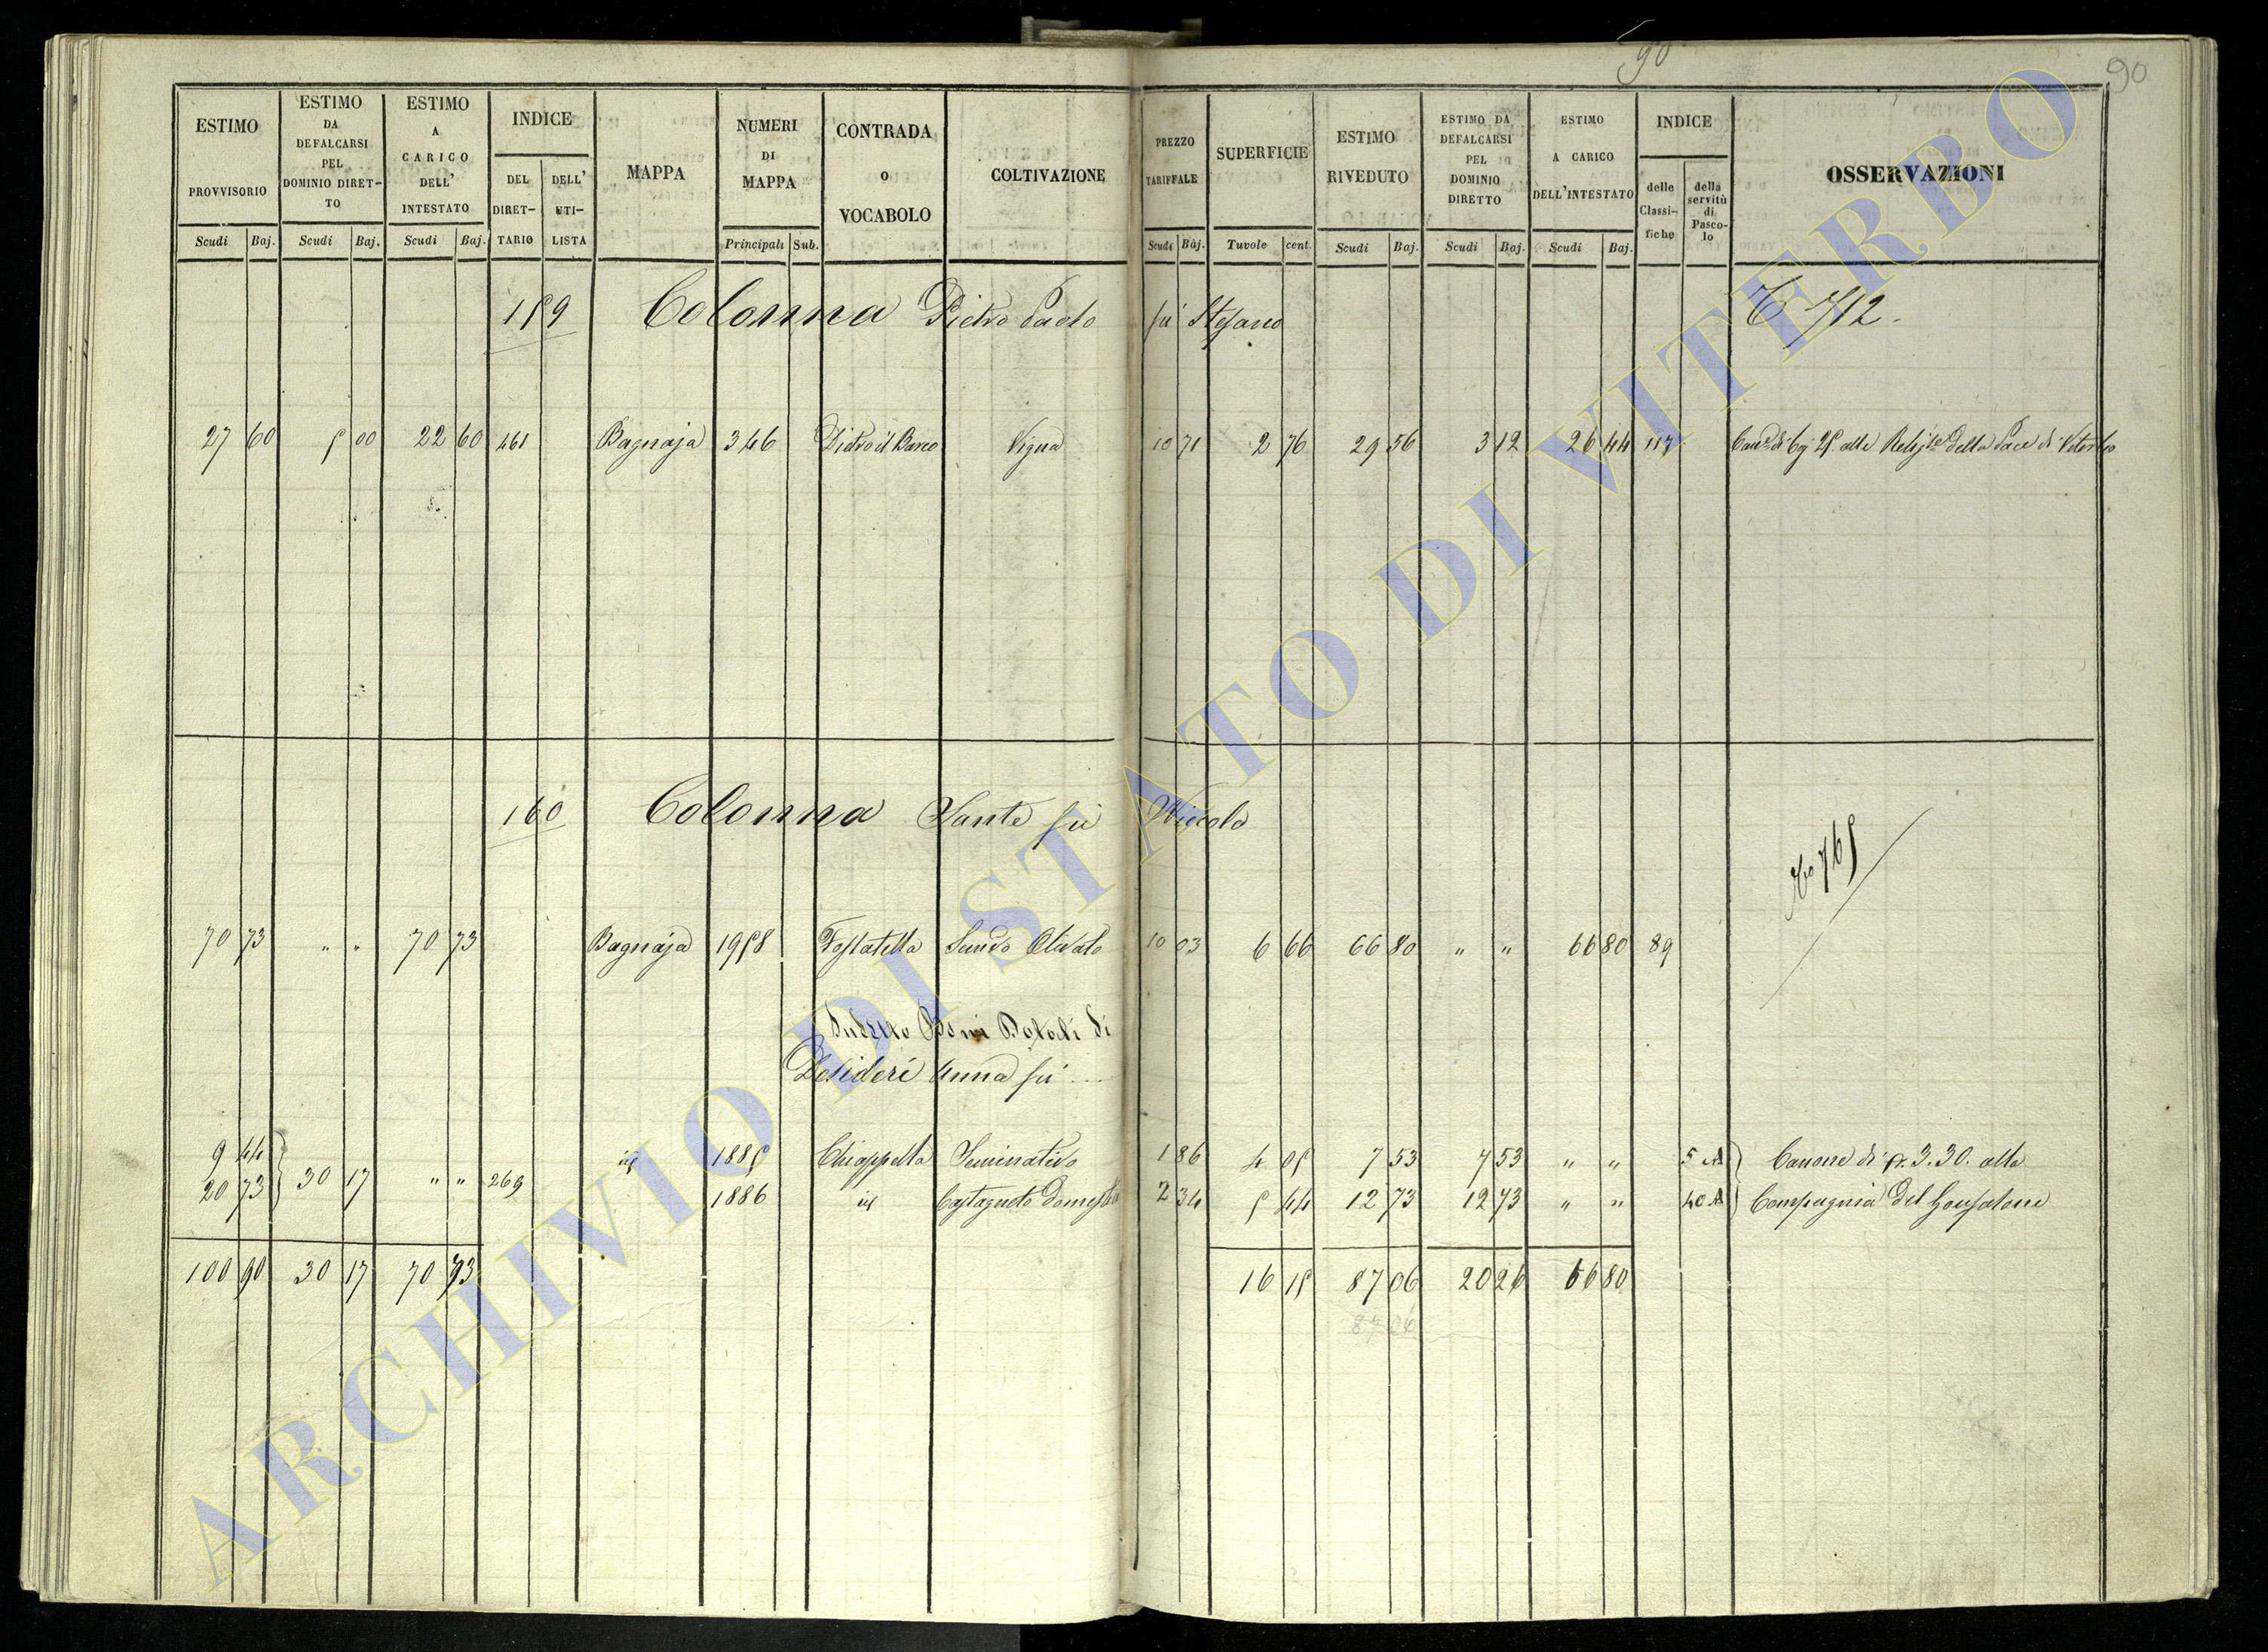 90
90
ESTIMO PROVVISORIO
ESTIMO DA DEFALCARSI PEL DOMINIO DIRET- TO
ESTIMO A CARICO DELL' INTESTATO
INDICE
DEL DIRET- TARIO
DELL' UTI- LISTA
MAPPA
NUMERI DI MAPPA
CONTRADA O VOCABOLO
COLTIVAZIONE
PREZZO TARIFFALE
SUPERFICIE
ESTIMO RIVEDUTO
ESTIMO DA DEFALCARSI PEL DOMINIO DIRETTO
ESTIMO A CARICO DELL'INTESTATO
INDICE
delle Classi- fiche
della servitù di Pasco- lo
OSSERVAZIONI
Scudi Baj. Scudi Baj. Scudi Baj. Principali Sub. Scudi Baj. Tavole cent. Scudi Baj. Scudi Baj. Scudi Baj.
159 Colonna Pietro Paolo fù Stefano 712.
27 60 5 00 22 60 461 Bagnaja 346 Dietro il Barco Vigna 10 71 2 76 29 56 3 12 26 44 117 alle della Pace di Viterbo
160 Colonna Sante fù Niccola
765
70 73 " " 70 73 Bagnaja 1958 Fossatella Olivato 10 03 6 66 66 80 " " 66 80 89
Beni Dotali di
Desideri Anna fù ...
9 44 id 1885 Chiappetta Seminativo 1 86 4 05 7 53 7 53 " " 5 A Canone di 3.30. alla
20 73 30 17 " " 269 1886 id Castagneto Domestico 2 34 5 44 12 73 12 73 " " 40 A Compagnia del Gonfalone
100 90 30 17 70 73 16 15 87 06 20 26 66 80
87 06
ARCHIVIO DI STATO DI VITERBO